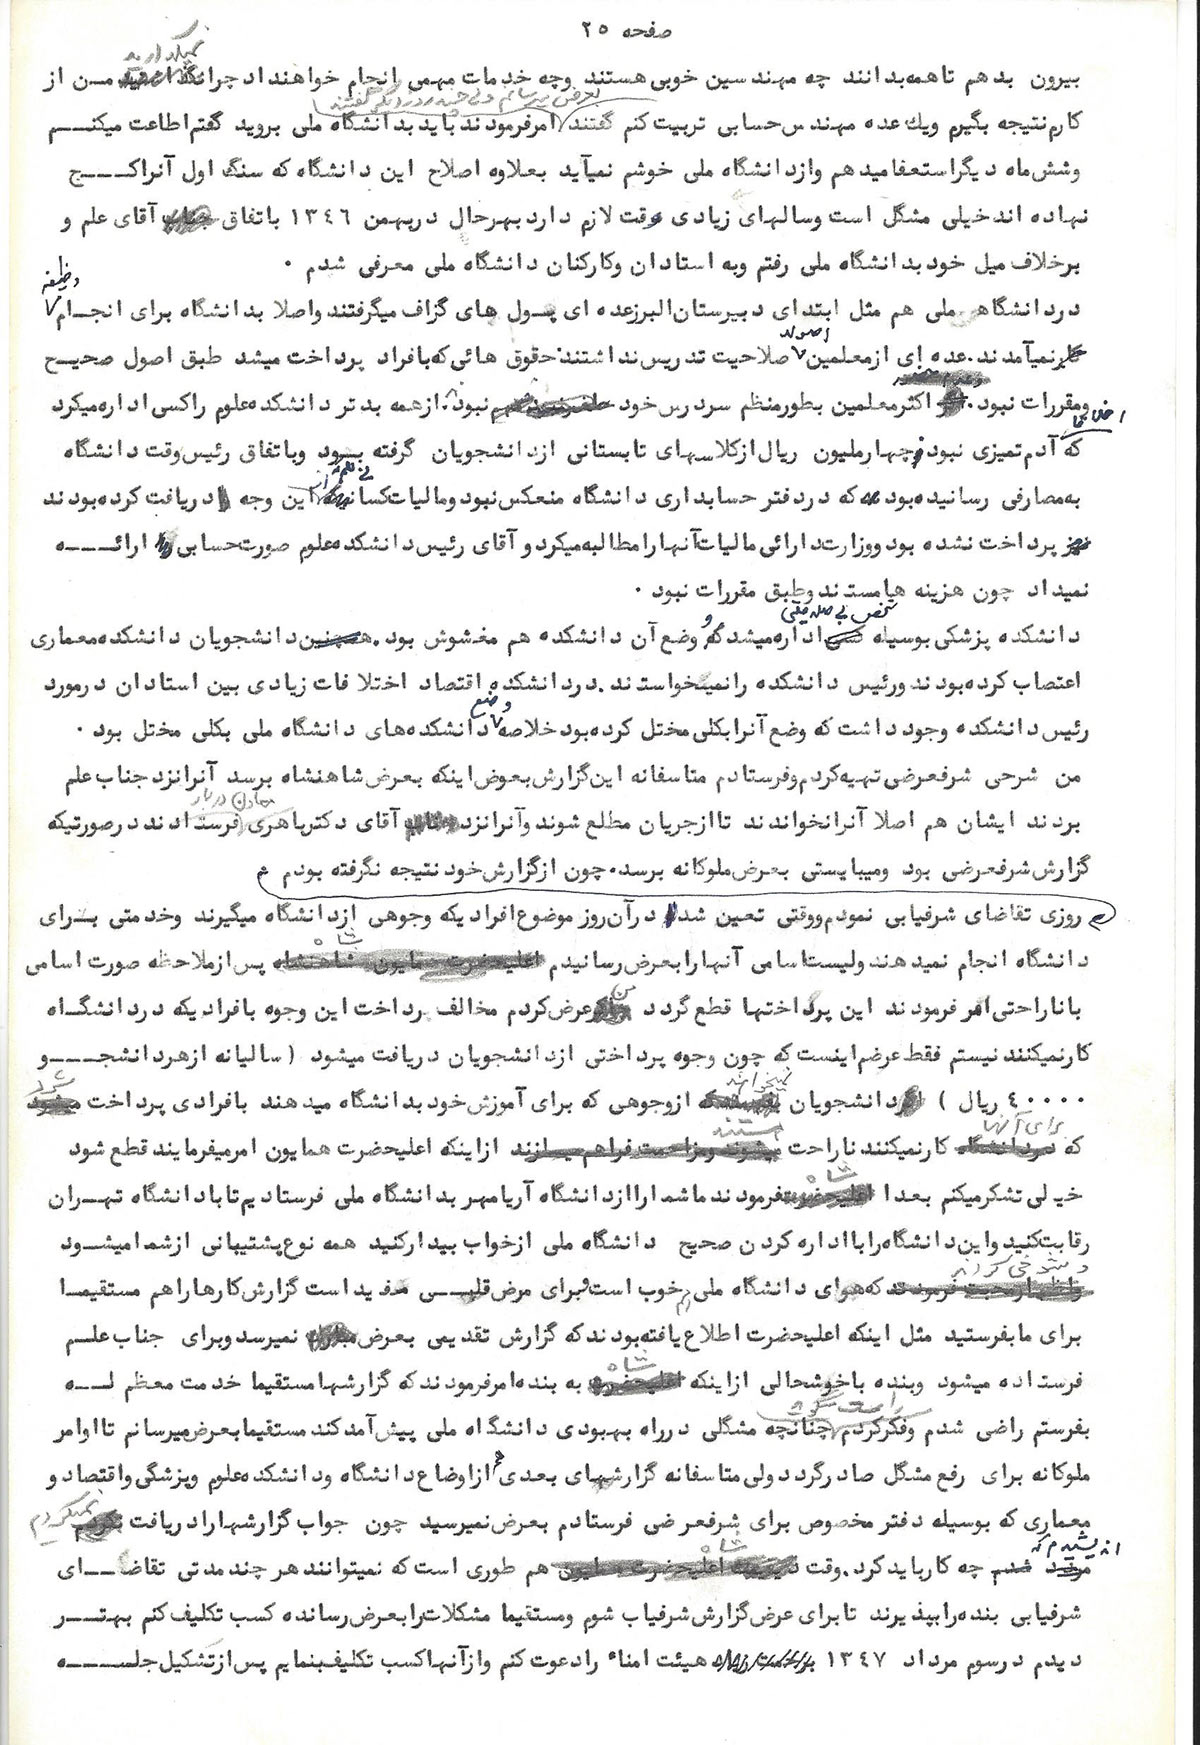 صفحه ۲۵
نمیگذارید
بیرون بدهم تا همه بدانند چه مهندسین خوبی هستند وچه خدمات مهمی انجام خواهند داد چرا من از
بعرض برسانم ولی چند روز دیگر گفتند
کارم نتیجه بگیرم ویك عده مهندس حسابی تربیت کنم گفتند امر فرمودند باید بدانشگاه ملی بروید گفتم اطاعت میکنـــم
وشش ماه دیگر استعفا میدهم واز دانشگاه ملی خوشم نمیآید بعلاوه اصلاح این دانشگاه که سنگ اول آنرا کـــج
نهاده اند خیلی مشگل است وسالهای زیادی وقت لازم دارد بهرحال در بهمن ۱۳٤٦ باتفاق جناب آقای علم و
برخلاف میل خود بدانشگاه ملی رفتم وبه استادان وکارکنان دانشگاه ملی معرفی شدم .
وظیفه
در دانشگاه ملی هم مثل ابتدای دبیرستان البرز عده ای پول های گزاف میگرفتند واصلا بدانشگاه برای انجـام
اصولا
کار نمیآمدند. عده ای از معلمین صلاحیت تدریس نداشتند. حقوق هائی که بافراد پرداخت میشد طبق اصول صحیـح
ومقررات نبود. اکثر معلمین بطور منظم سر درس خود نبود. از همه بدتر دانشکده علوم راکسی اداره میکرد
اخلاقا
که آدم تمیزی نبود و چهار ملیون ریال از کلاسهای تابستانی از دانشجویان گرفته بود وباتفاق رئیس وقت دانشگاه
به مصارفی رسانیده بود که در دفتر حسابداری دانشگاه منعکس نبود ومالیات کسانیکه این وجه را دریافت کرده بودند
نیز پرداخت نشده بود ووزارت دارائی مالیات آنها را مطالبه میکرد و آقای رئیس دانشکده علوم صورت حسابی ارائـــه
نمیداد چون هزینه ها مستند وطبق مقررات نبود .
شخص بی صلاحیتی
دانشکده پزشکی بوسیله کسی اداره میشد که وضع آن دانشکده هم مغشوش بود. همچنین دانشجویان دانشکده معماری
اعتصاب کرده بودند ورئیس دانشکده را نمیخواستند . در دانشکده اقتصاد اختلافات زیادی بین استادان در مورد
وضع
رئیس دانشکده وجود داشت که وضع آنرا بکلی مختل کرده بود خلاصه دانشکده های دانشگاه ملی بکلی مختل بود .
من شرحی شرفعرضی تهیه کردم وفرستادم متاسفانه این گزارش بعوض اینکه بعرض شاهنشاه برسد آنرا نزد جناب علم
معاون دربار
بردند ایشان هم اصلا آنرا نخواندند تا از جریان مطلع شوند وآنرا نزد جناب آقای دکتر باهری فرستادند در صورتیکه
گزارش شرفعرضی بود ومیبایستی بعرض ملوکانه برسد. چون از گزارش خود نتیجه نگرفته بودم
روزی تقاضای شرفیابی نمودم ووقتی تعین شد در آن روز موضوع افرادیکه وجوهی از دانشگاه میگیرند وخدمتی بــرای
شاه
دانشگاه انجام نمیدهند ولیست اسامی آنها را بعرض رسانیدم اعلیحضرت همایون شاهنشاه پس از ملاحظه صورت اسامی
من
با ناراحتی امر فرمودند این پرداختها قطع گردد عرض کردم مخالف پرداخت این وجوه بافرادیکه در دانشگـاه
کار نمیکنند نیستم فقط عرضم اینست که چون وجوه پرداختی از دانشجویان دریافت میشود ( سالیانه از هر دانشجــو
نمیخواهند شود
٤۰۰۰۰ ریال ) دانشجویان از وجوهی که برای آموزش خود بدانشگاه میدهند بافرادی پرداخت میشود
برای آنها هستند
که در دانشگاه کار نمیکنند ناراحت میشوند ومزاحمت فراهم میسازند از اینکه اعلیحضرت همایون امر میفرمایند قطع شود
شاه
خیلی تشکر میکنم بعدا اعلیحضرت فرمودند ما شما را از دانشگاه آریامهر بدانشگاه ملی فرستادیم تا با دانشگاه تهـران
رقابت کنید واین دانشگاه را با اداره کردن صحیح دانشگاه ملی از خواب بیدار کنید همه نوع پشتیبانی از شما میشـود
و شوخی کردند
که هوای دانشگاه ملی خوب است وبرای مرض قلبــی مفید است گزارش کارها را هم مستقیمـا
برای ما بفرستید مثل اینکه اعلیحضرت اطلاع یافته بودند که گزارش تقدیمی بعرض نمیرسد وبرای جناب علــم
شاه
فرستاده میشود وبنده با خوشحالی از اینکه اعلیحضرت به بنده امر فرمودند که گزارشها مستقیما خدمت معظم لــه
بفرستم راضی شدم وفکر کردم چنانچه مشگلی در راه بهبودی دانشگاه ملی پیش آمد کند مستقیما بعرض میرسانم تا اوامر
ملوکانه برای رفع مشگل صادر گردد ولی متاسفانه گزارشهای بعدی هم از اوضاع دانشگاه ودانشکده علوم وپزشگی واقتصاد و
نمیکردم
معماری که بوسیله دفتر مخصوص برای شرفعرضی فرستادم بعرض نمیرسید چون جواب گزارشها را دریافت نکردم
اندیشیدم که شاه
مردد شدم چه کار باید کرد. وقت اعلیحضرت همایون هم طوری است که نمیتوانند هر چند مدتی تقاضــای
شرفیابی بنده را بپذیرند تا برای عرض گزارش شرفیاب شوم ومستقیما مشکلات را بعرض رسانده کسب تکلیف کنم بهتــر
دیدم در سوم مرداد ۱۳٤۷ هیئت امناء را دعوت کنم واز آنها کسب تکلیف بنمایم پس از تشکیل جلســه